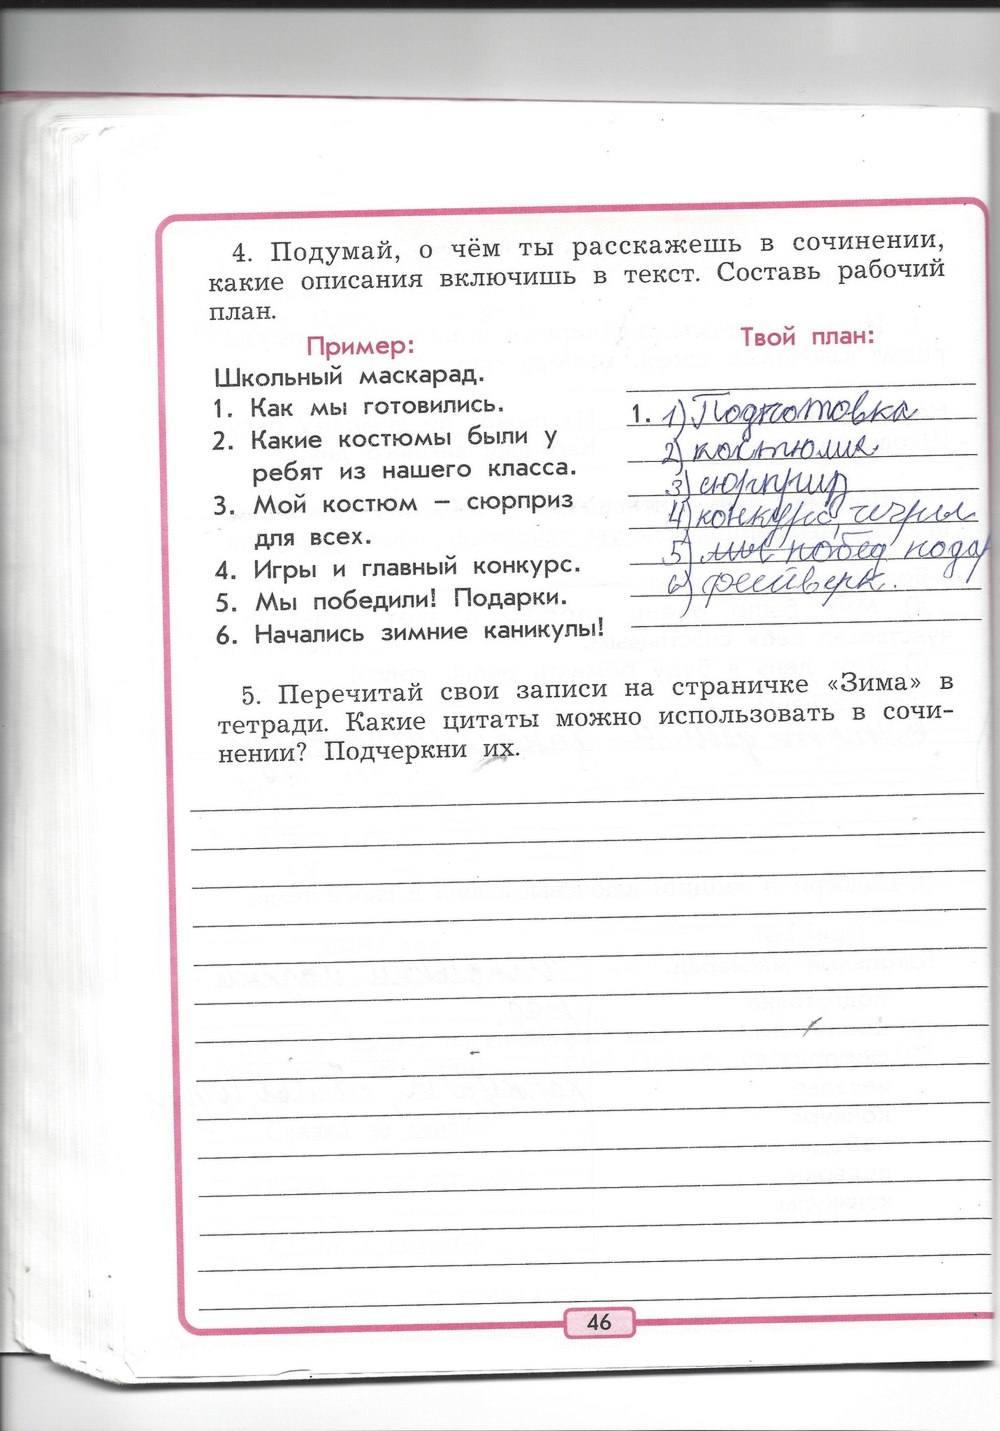 4. Подумай, о чём ты расскажешь в сочинении,
какие описания включишь в текст. Составь рабочий
план.
Пример:
Твой план:
Школьный маскарад.
1. Как мы готовились.
2. Какие костюмы были у
ребят из нашего класса.
3. Мой костюм – сюрприз
для всех.
4. Игры и главный конкурс.
5. Мы победили! Подарки.
6. Начались зимние каникулы!
1. 1) Подготовка
2) костюмы
3) сюрприз
4) конкурс, игры
5) мы побед пода
6) фейверк.
5. Перечитай свои записи на страничке «Зима» в
тетради. Какие цитаты можно использовать в сочи-
нении? Подчеркни их.
46